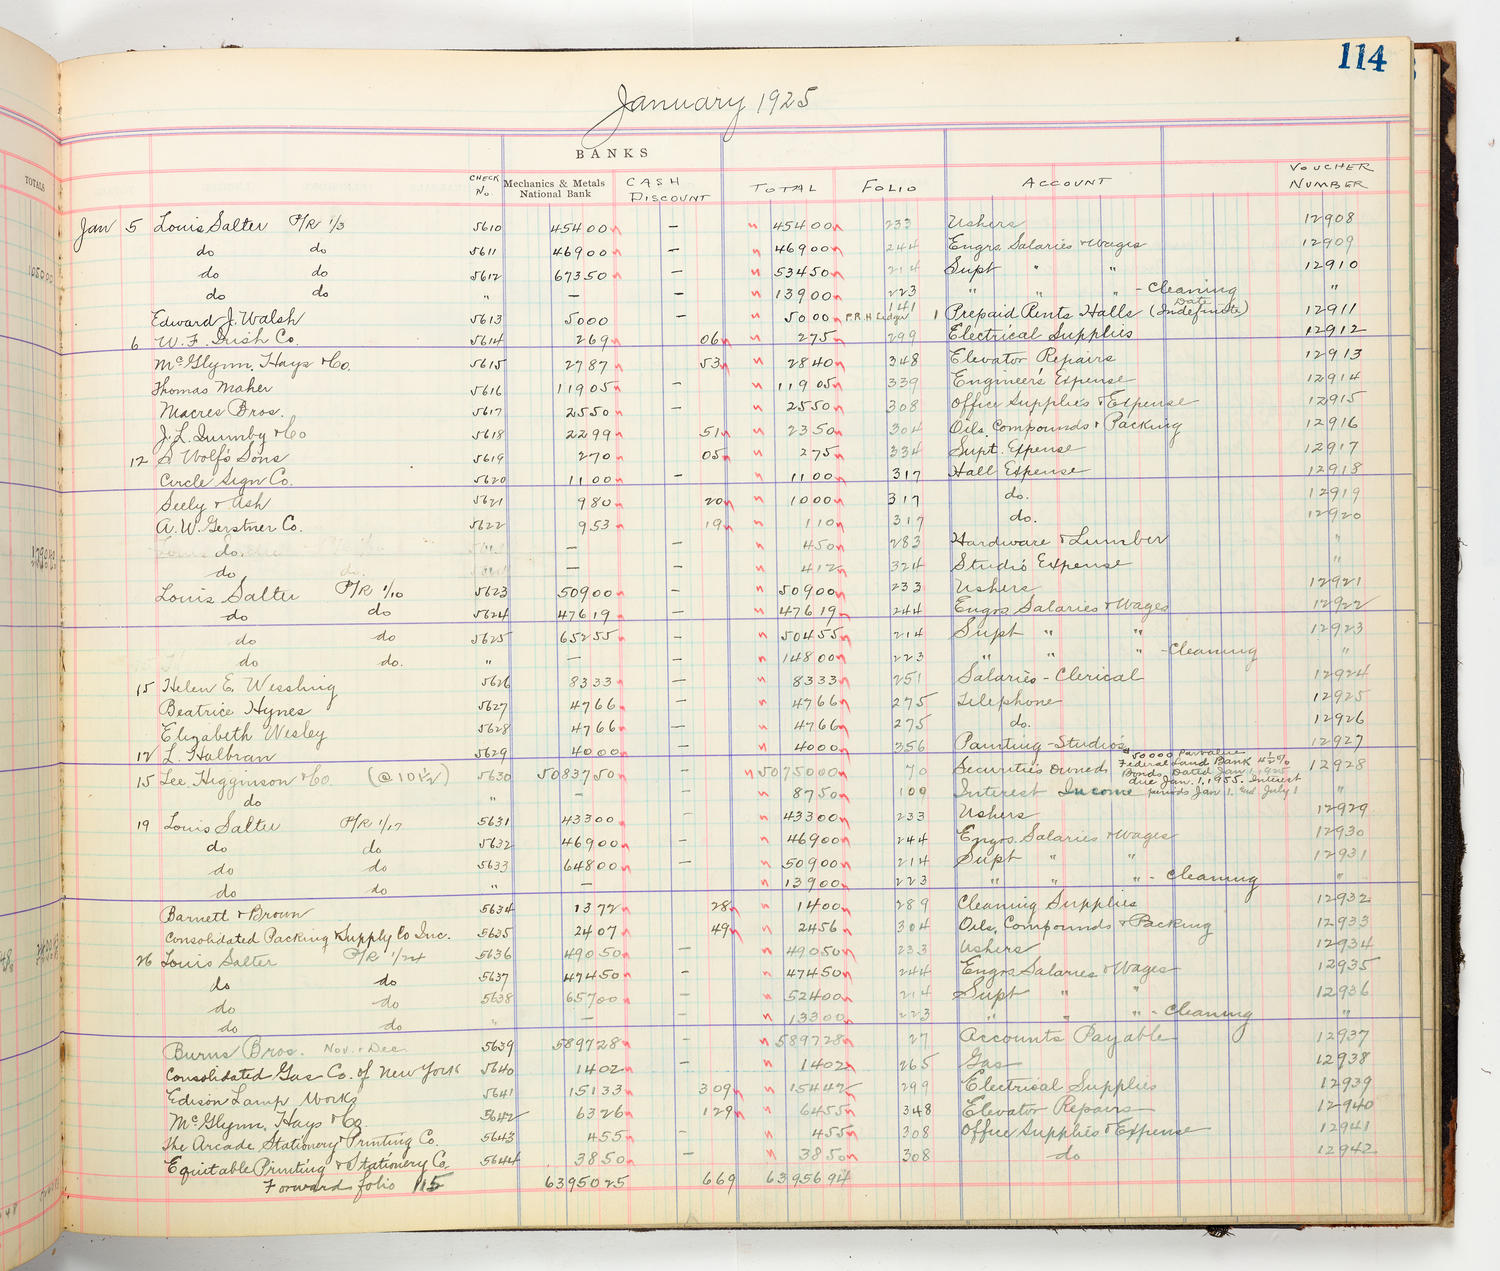 114
January 1925
BANKS
CHECK No. Mechanics & Metals National Bank CASH DISCOUNT TOTAL FOLIO ACCOUNT VOUCHER NUMBER
TOTALS
Jan 5 Louis Salter P/R 1/3 5610 454 00 — 454 00 233 Ushers 12908
do do 5611 469 00 — 469 00 244 Engrs. Salaries & Wages 12909
do do 5612 673 50 — 534 50 214 Supt " " 12910
do do " — — 139 00 223 " " " - Cleaning "
Edward J. Walsh 5613 50 00 — 50 00 P.R.H. Ledger 141 1 Prepaid Rents Halls (Date Indefinite) 12911
6 W. F. Irish Co. 5614 2 69 06 2 75 299 Electrical Supplies 12912
McGlynn, Hays & Co. 5615 27 87 53 28 40 348 Elevator Repairs 12913
Thomas Maher 5616 119 05 — 119 05 339 Engineer's Expense 12914
Macres Bros. 5617 25 50 — 25 50 308 Office Supplies & Expense 12915
J. L. Quimby & Co 5618 22 99 51 23 50 304 Oils, Compounds & Packing 12916
12 S. Wolf's Sons 5619 2 70 05 2 75 334 Supt. Expense 12917
Circle Sign Co. 5620 11 00 — 11 00 317 Hall Expense 12918
Seely & Ash 5621 9 80 20 10 00 317 do. 12919
A. W. Gerstner Co. 5622 9 53 19 1 10 317 do. 12920
do. — — 4 50 283 Hardware & Lumber "
do — — 4 12 324 Studio Expense "
Louis Salter P/R 1/10 5623 509 00 — 509 00 233 Ushers 12921
do do 5624 476 19 — 476 19 244 Engrs Salaries & Wages 12922
do do 5625 652 55 — 504 55 214 Supt " " 12923
do do. " — — 148 00 223 " " " - Cleaning "
15 Helen E. Wessling 5626 83 33 — 83 33 251 Salaries - Clerical 12924
Beatrice Hynes 5627 47 66 — 47 66 275 Telephone 12925
Elizabeth Wesley 5628 47 66 — 47 66 275 do. 12926
12 L. Halbran 5629 40 00 — 40 00 356 Painting - Studios 12927
15 Lee, Higginson & Co. (@ 101 1/2) 5630 50837 50 — 50750 00 70 Securities Owned $50000 Par value Federal Land Bank 4 1/2% Bonds, Dated Jan 1, 1925 due Jan. 1, 1955. Interest 12928
do " — — 87 50 100 Interest Income periods Jan 1. and July 1 "
19 Louis Salter P/R 1/17 5631 433 00 — 433 00 233 Ushers 12929
do do 5632 469 00 — 469 00 244 Engrs. Salaries & Wages 12930
do do 5633 648 00 — 509 00 214 Supt " " 12931
do do " — 139 00 223 " " " - Cleaning "
Barnett & Brown 5634 13 72 28 14 00 289 Cleaning Supplies 12932
Consolidated Packing & Supply Co Inc. 5635 24 07 49 24 56 304 Oils, Compounds & Packing 12933
26 Louis Salter P/R 1/24 5636 490 50 — 490 50 233 Ushers 12934
do do 5637 474 50 — 474 50 244 Engrs Salaries & Wages 12935
do do 5638 657 00 — 524 00 214 Supt " " 12936
do do " — — 133 00 223 " " " - Cleaning "
Burns Bros. Nov. & Dec. 5639 5897 28 5897 28 27 Accounts Payable 12937
Consolidated Gas Co. of New York 5640 14 02 — 14 02 265 Gas 12938
Edison Lamp Works 5641 151 33 3 09 154 42 299 Electrical Supplies 12939
McGlynn, Hays & Co. 5642 63 26 1 29 64 55 348 Elevator Repairs 12940
The Arcade Stationery & Printing Co. 5643 4 55 — 4 55 308 Office Supplies & Expense 12941
Equitable Printing & Stationery Co. 5644 38 50 — 38 50 308 do 12942
Forward folio 115 63950 25 6 69 63956 94